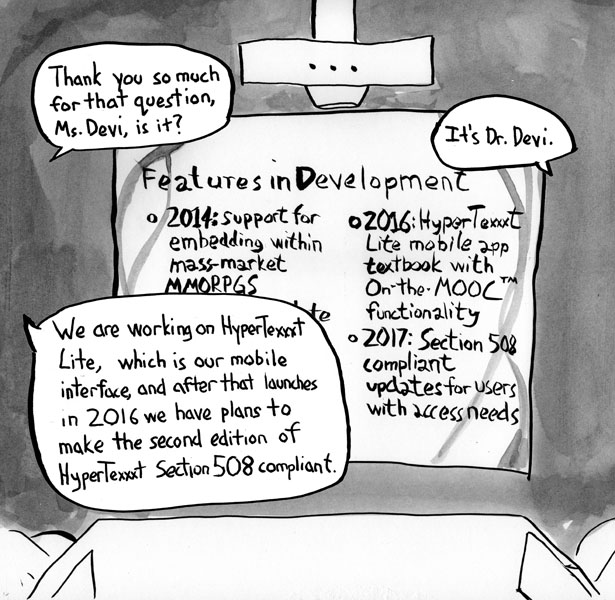 Thank you so much
for that question,
Ms. Devi, is it?
It's Dr. Devi.
Features in Development
2014: support for
embedding within
mass-market
MMORPGS
2016: HyperTexxxt
Lite mobile app
textbook with
On-the-MOOC™
functionality
2017: Section 508
compliant
updates for users
with access needs
We are working on HyperTexxxt
Lite, which is our mobile
interface, and after that launches
in 2016 we have plans to
make the second edition of
HyperTexxxt Section 508 compliant.